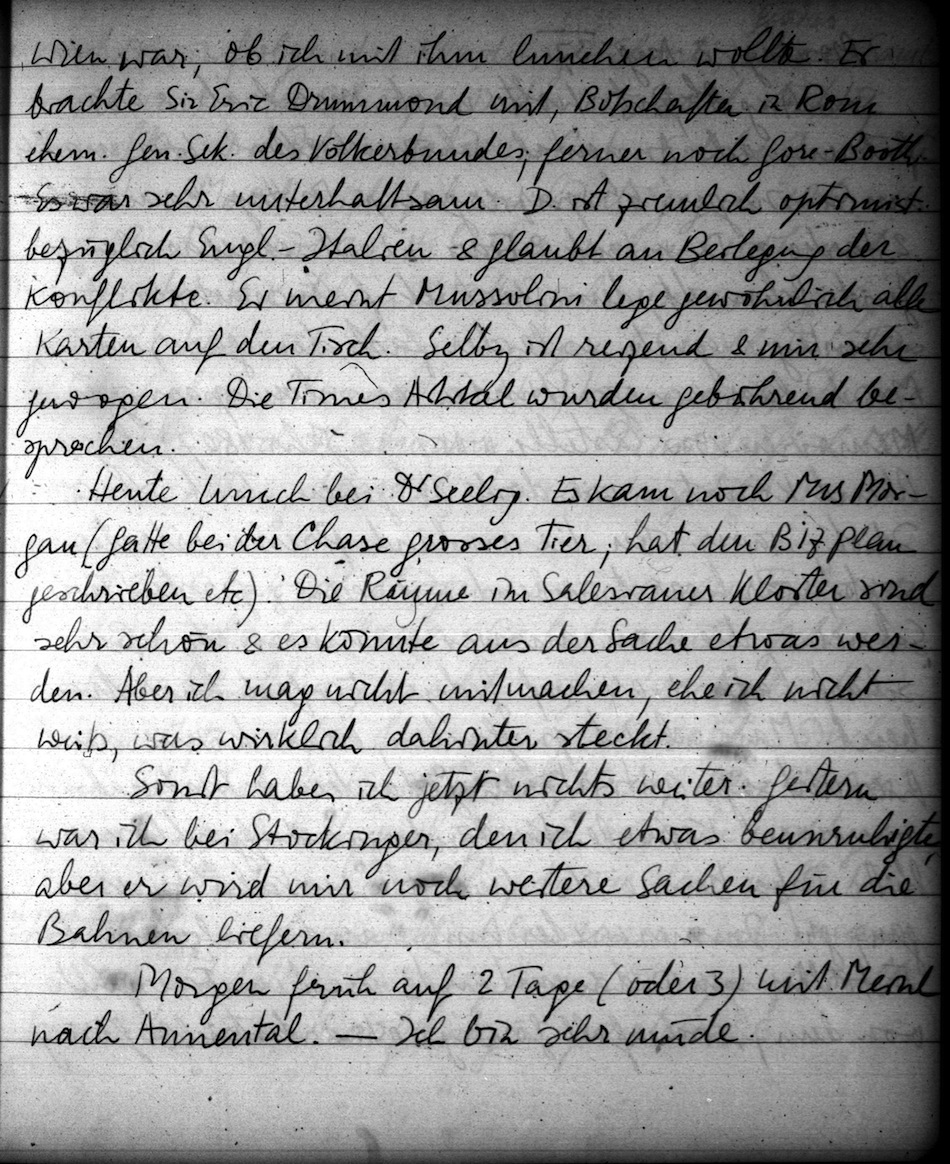 Wien war, ob ich mit ihm lunchen wollte. Er
brachte Sir Eric Drummond mit, Botschafter in Rom
ehem. Gen. Sek. des Völkerbundes; ferner noch Gore-Booth.
Es war sehr unterhaltsam. D. ist ziemlich optimist.
bezüglich Engl.- Italien & glaubt an Beilegung der
Konflikte. Er meint Mussolini lege gewöhnlich alle
Karten auf den Tisch. Selby ist reizend & mir sehr
gewogen. Die Times Artikel wurden gebührend be-
sprochen.
Heute lunch bei Dr Seelig. Es kam noch Mrs Mor-
gan (Gatte bei der Chase grosses Tier; hat den BIZ plan
geschrieben etc). Die Räume im Salesianer Kloster sind
sehr schön & es könnte aus der Sache etwas wer-
den. Aber ich mag nicht mitmachen, ehe ich nicht
weiß, was wirklich dahinter steckt.
Sonst habe ich jetzt nichts weiter. Gestern
war ich bei Stockinger, den ich etwas beunruhigte,
aber er wird mir noch weitere Sachen für die
Bahnen liefern.
Morgen früh auf 2 Tage (oder 3) mit
nach Annental. — Ich bin sehr müde.